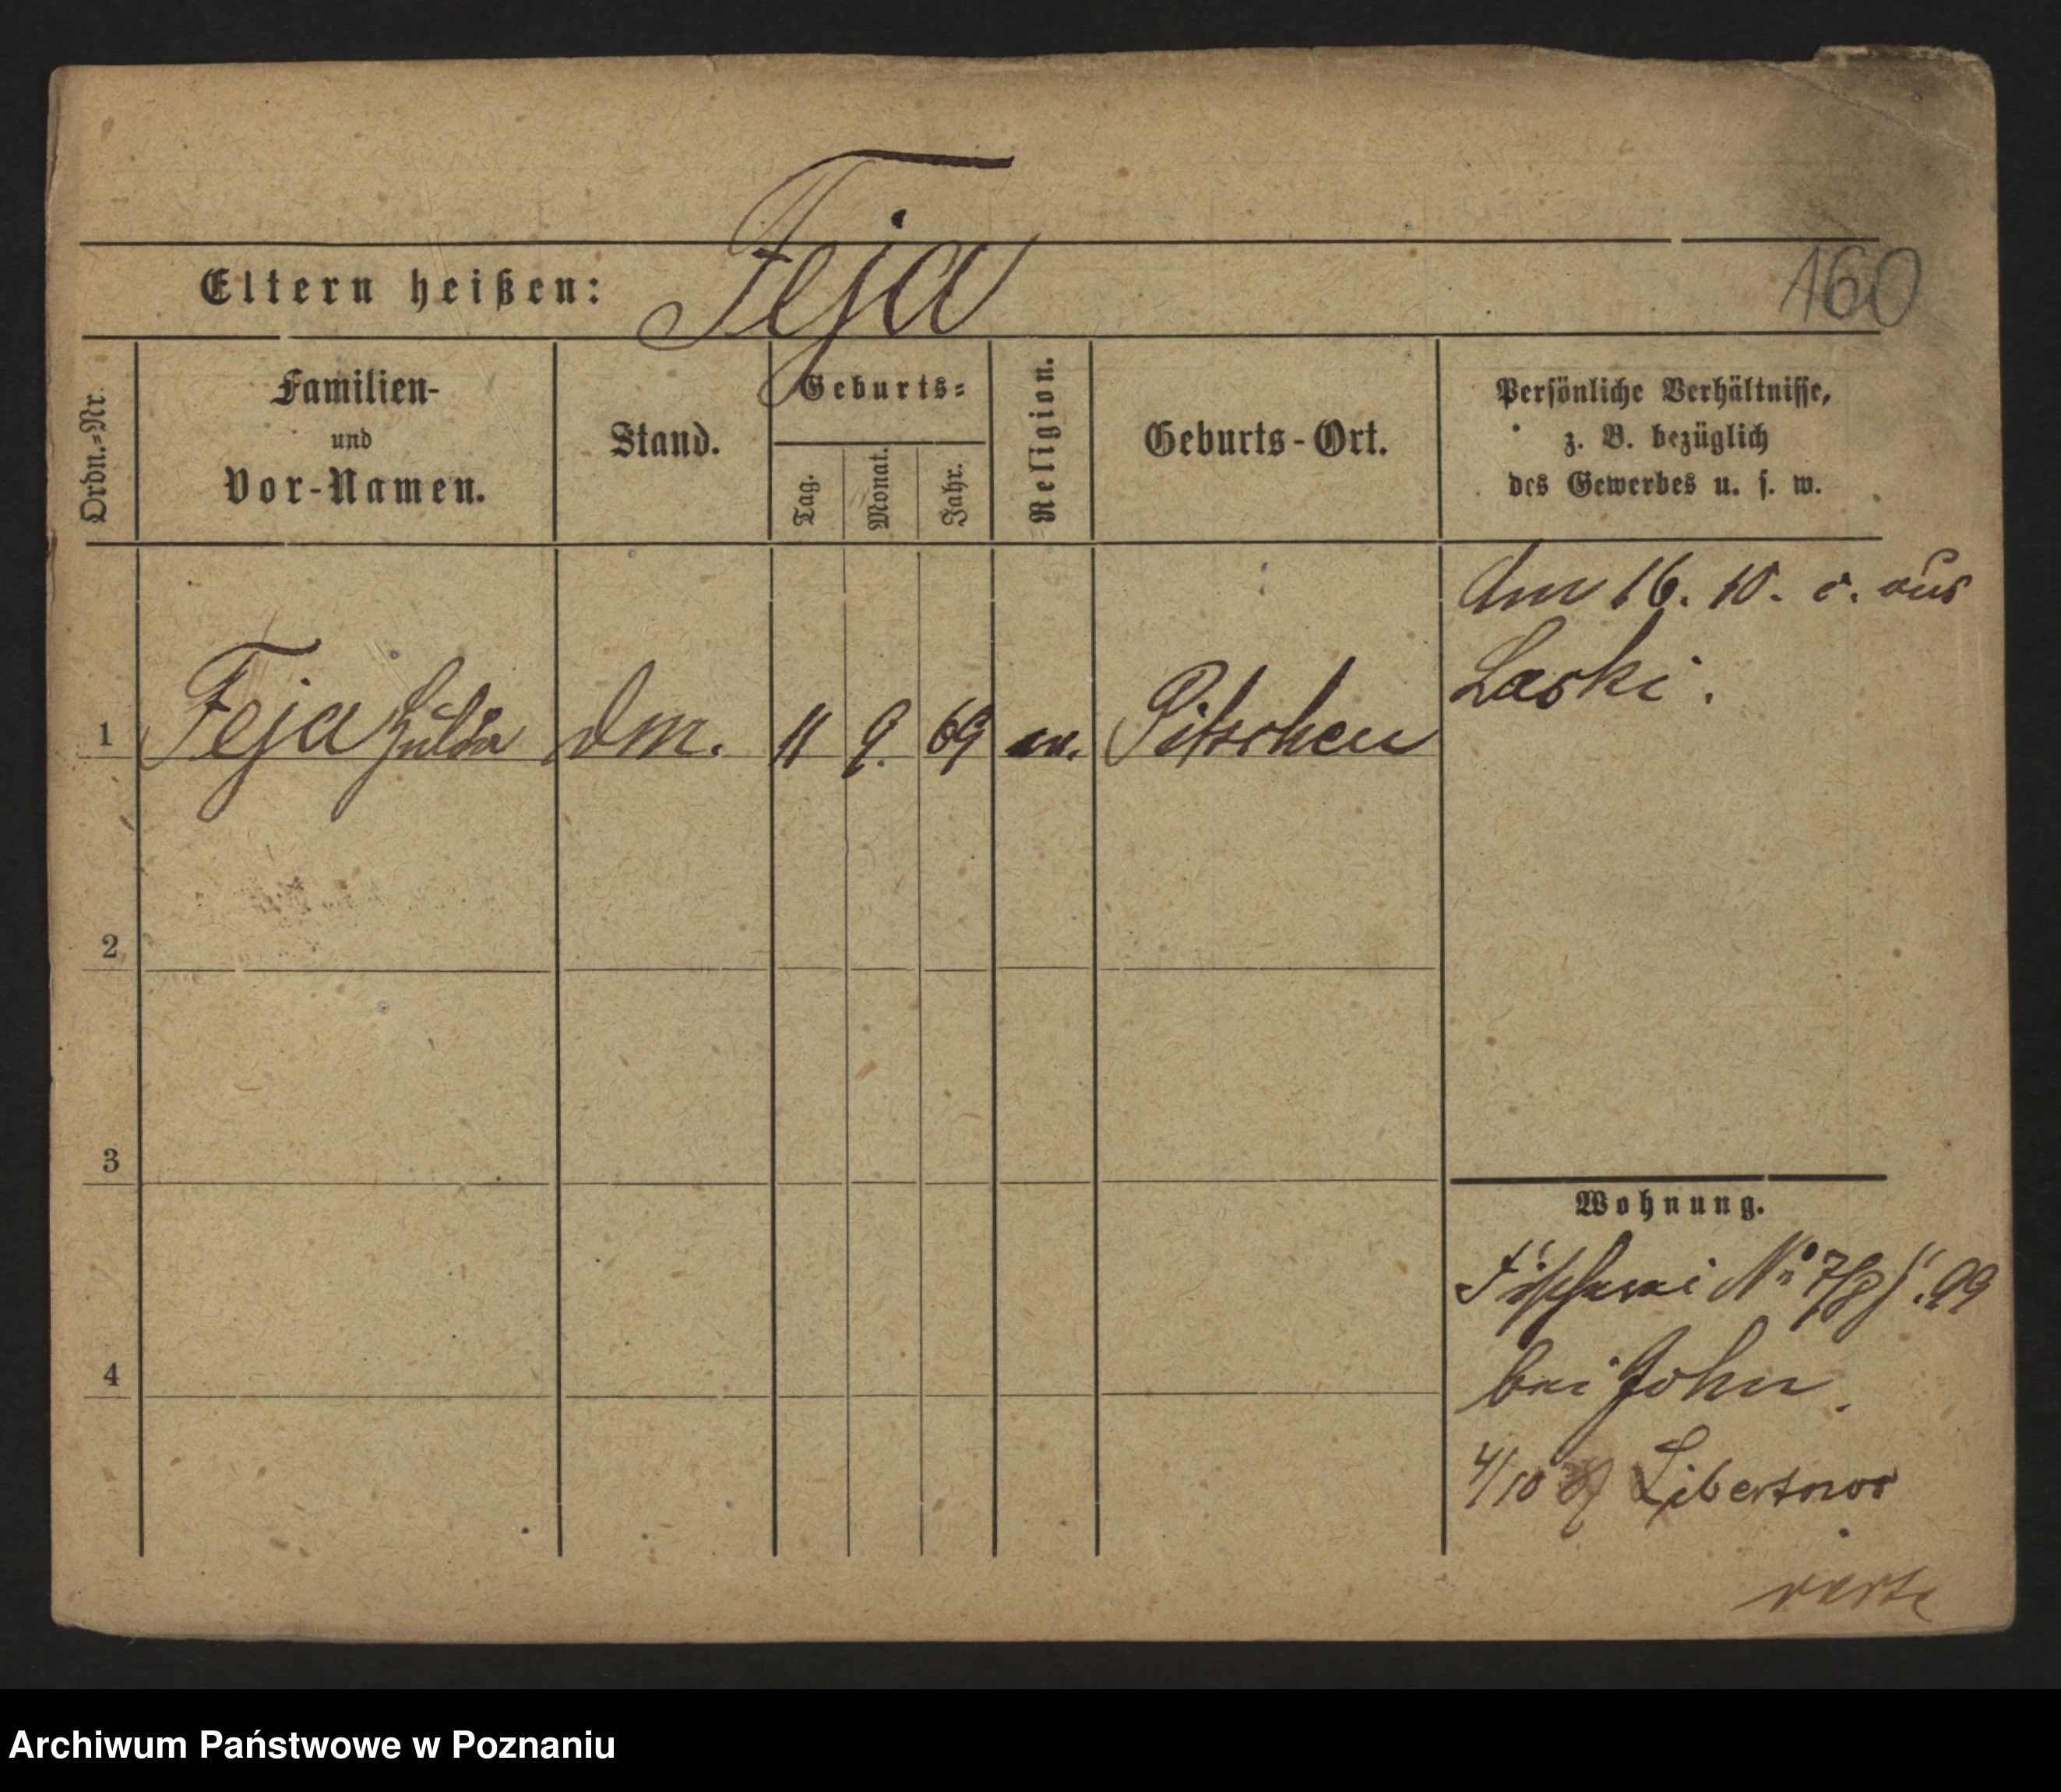 Eltern heißen: Feja
160
Ordn.=Nr.
Familien-
und
Vor-Namen.
Stand.
Geburts=
Tag.
Monat.
Jahr.
Religion.
Geburts-Ort.
Persönliche Verhältnisse,
z. B. bezüglich
des Gewerbes u. s. w.
Am 16. 10. c. aus
Laski.
1 Feja Hulda dm. 11 9. 69 ev. Pitschen
2
3
4
Wohnung.
Fischerei No 7/8 99
bei John.
4/10
verte
Archiwum Państwowe w Poznaniu